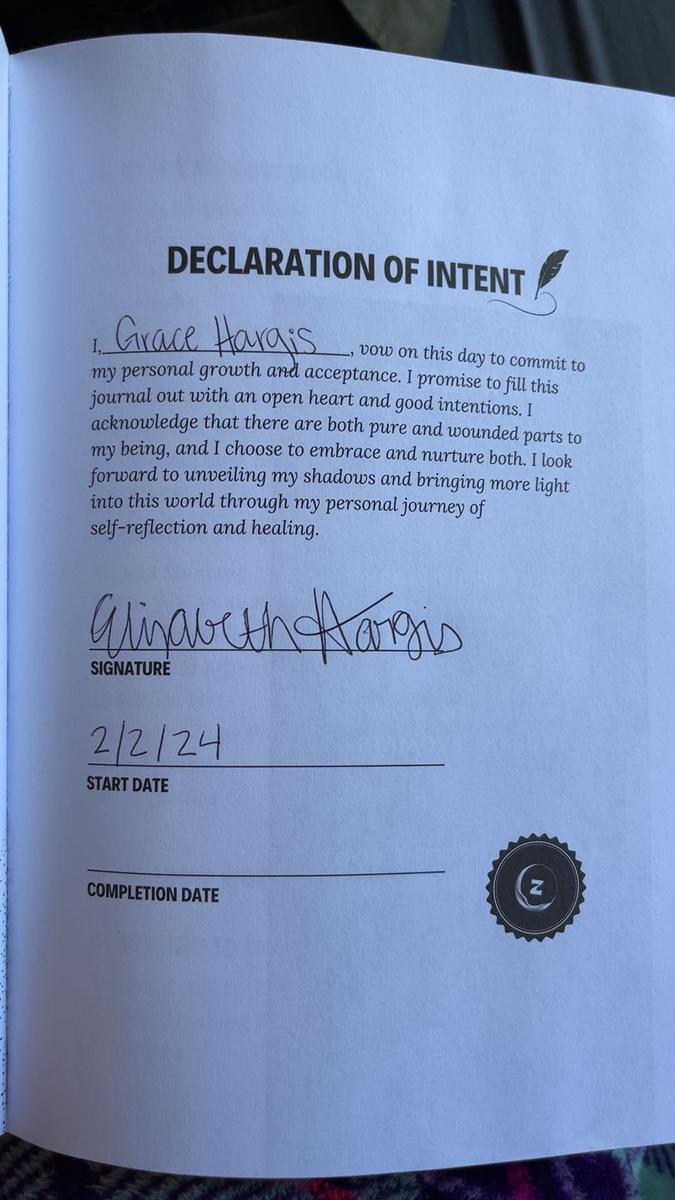 DECLARATION OF INTENT
I, Grace Hargis, vow on this day to commit to
my personal growth and acceptance. I promise to fill this
journal out with an open heart and good intentions. I
acknowledge that there are both pure and wounded parts to
my being, and I choose to embrace and nurture both. I look
forward to unveiling my shadows and bringing more light
into this world through my personal journey of
self-reflection and healing.
Elizabeth Hargis
SIGNATURE
2/2/24
START DATE
COMPLETION DATE
Z